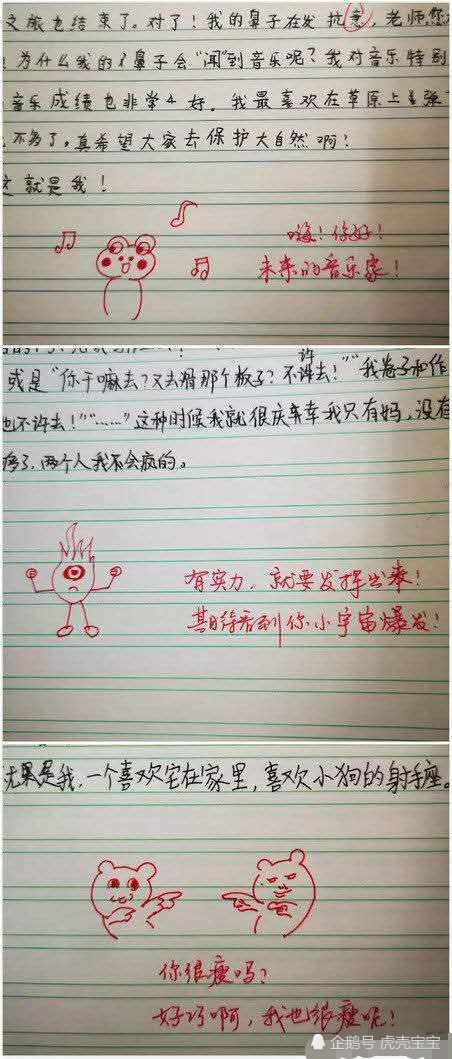 文旅也结束了。对了！我的鼻子在发抗意，老师，您
！为什么我的鼻子会"闻"到音乐呢？我对音乐特别
音乐成绩也非常好。我最喜欢在草原上
不多了，真希望大家去保护大自然啊！
这就是我！
嗨！你好！
未来的音乐家！
或是"你干嘛去？又去滑那个板子？不许去！""我卷子和作
也不许去！""……"这种时候我就很庆幸我只有妈，没有
疼了，两个人我不会疯的。
有实力，就要发挥出来！
期待看到你小宇宙爆发！
尤果是我，一个喜欢宅在家里，喜欢小狗的射手座。
你很瘦吗？
好巧啊，我也很瘦呢！
企鹅号 虎壳宝宝